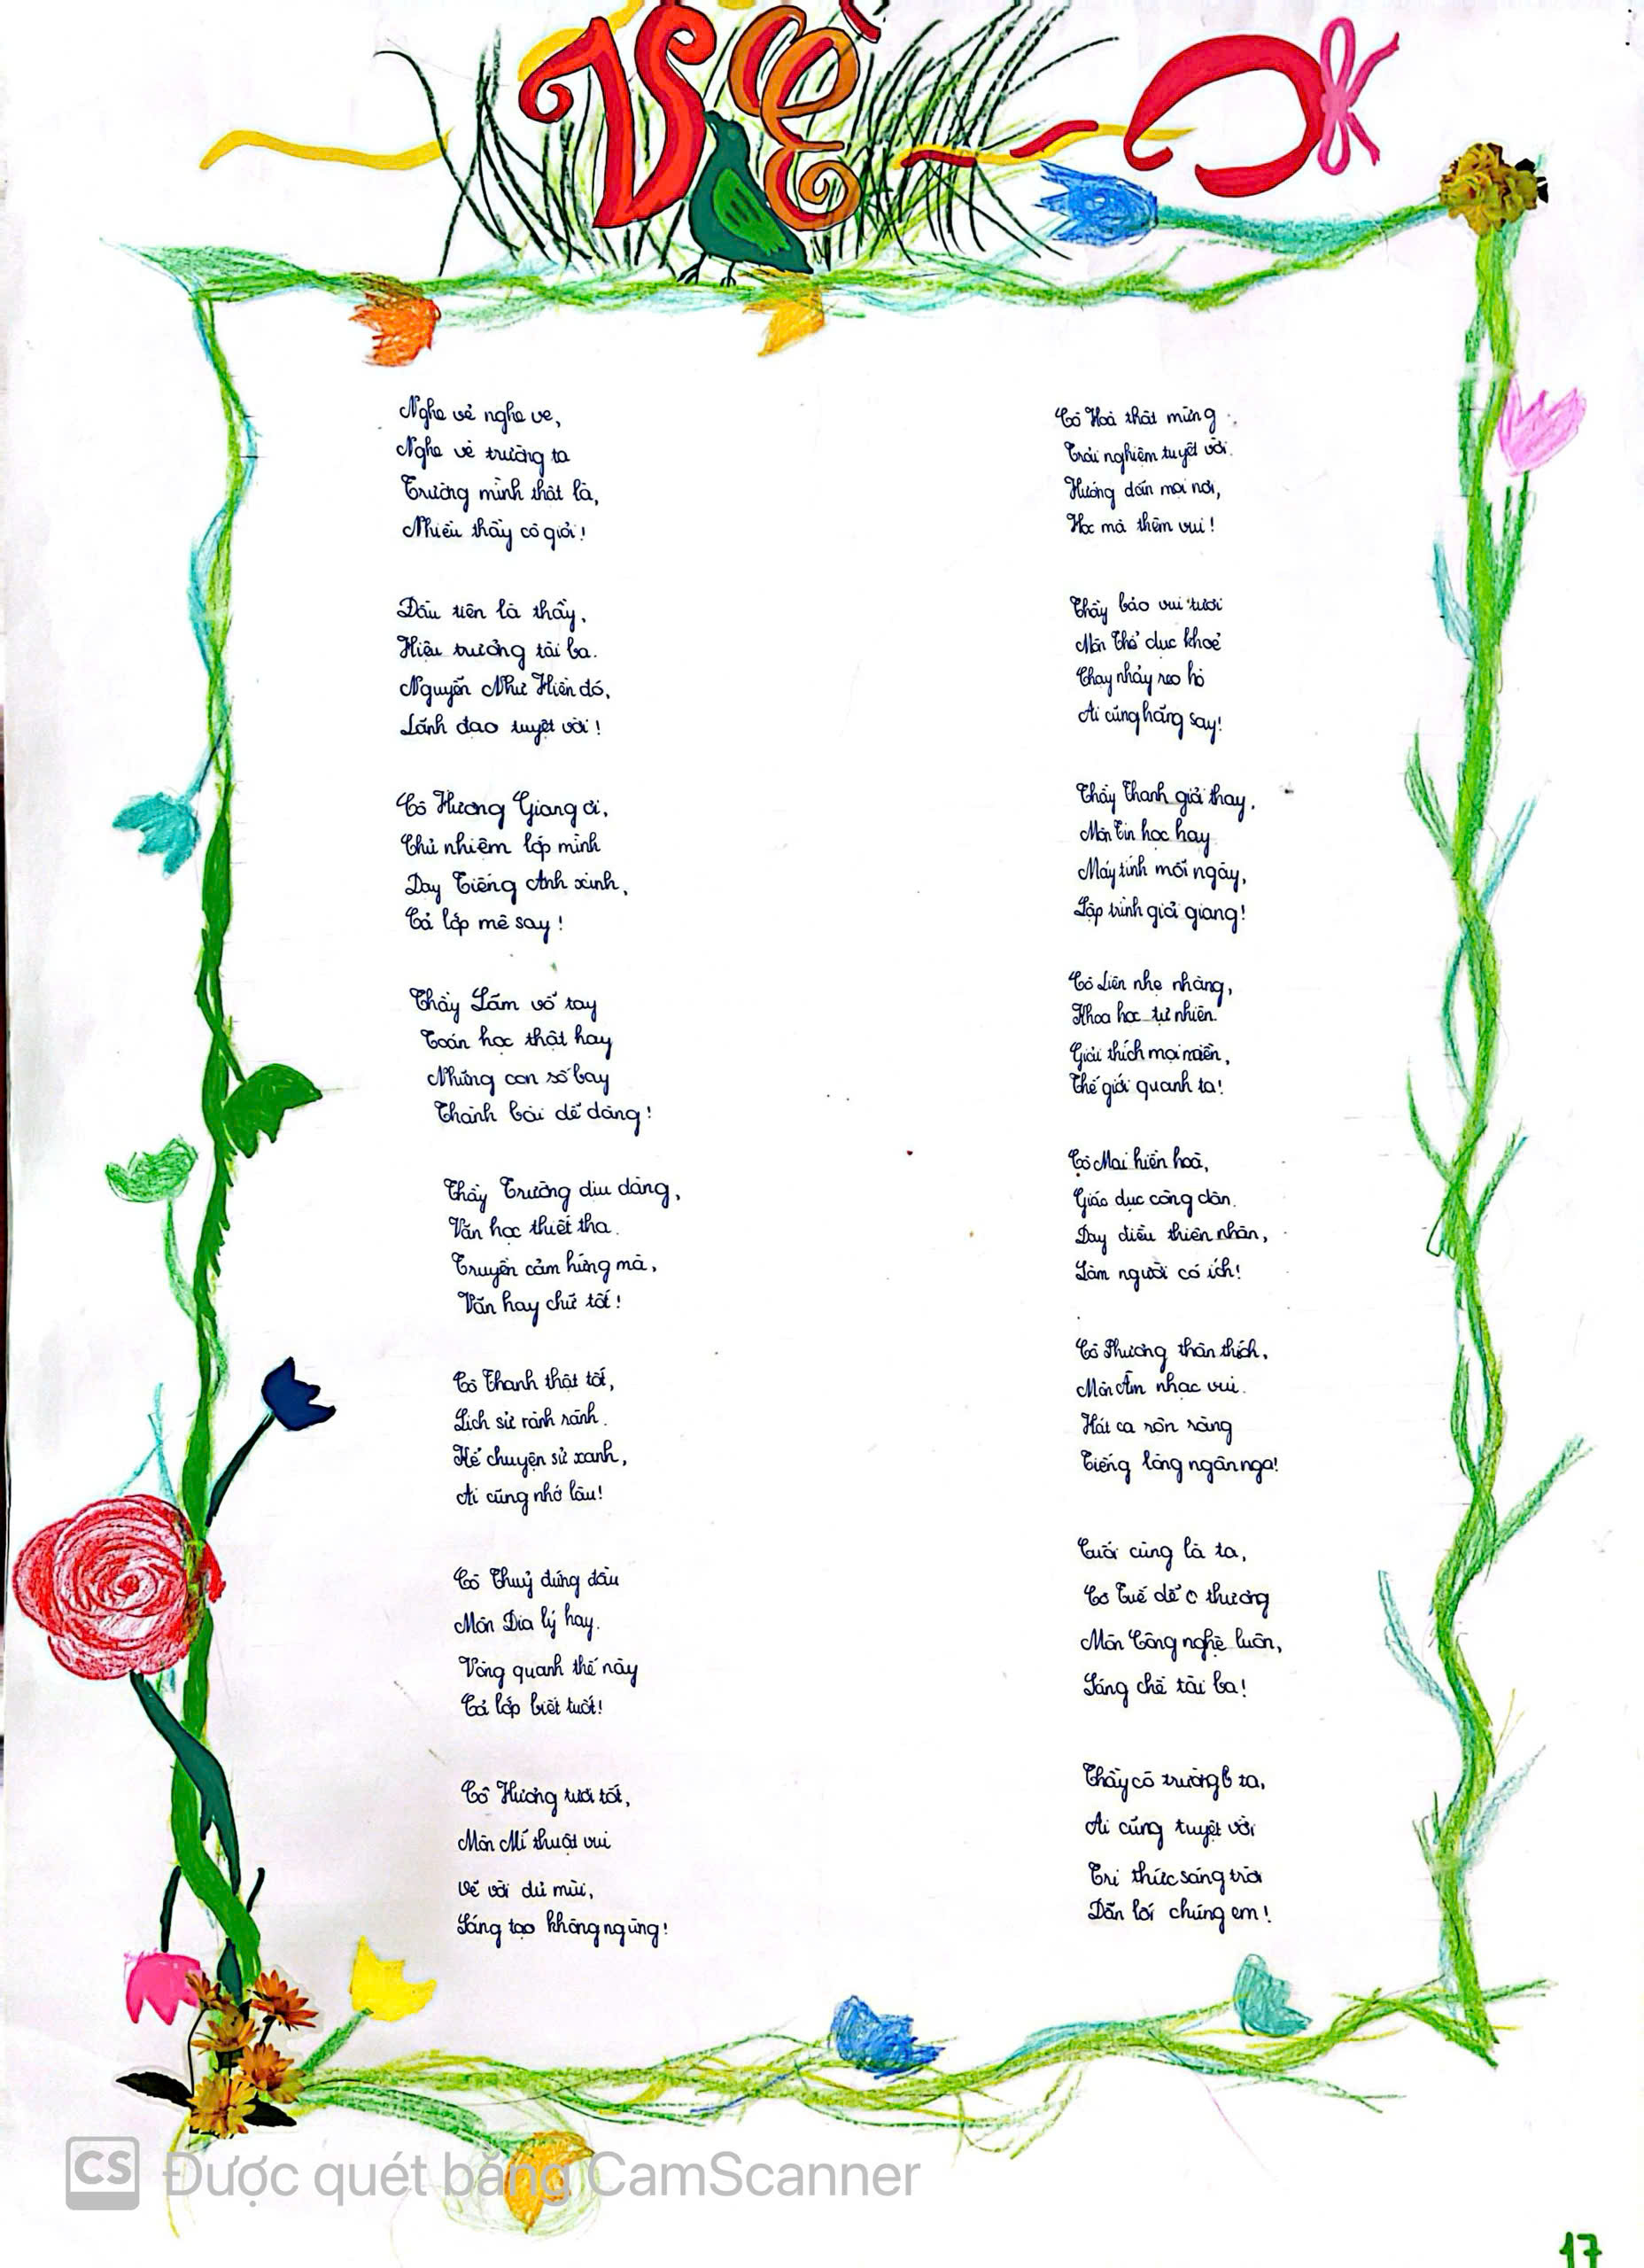 VÈ
Nghe vẻ nghe ve,
Nghe vè trường ta
Trường mình thật là,
Nhiều thầy cô giỏi!
Đầu tiên là thầy,
Hiệu trưởng tài ba.
Nguyễn Như Hiền đó,
Lãnh đạo tuyệt vời!
Cô Hương Giang ơi,
Chủ nhiệm lớp mình
Dạy Tiếng Anh xinh,
Cả lớp mê say!
Thầy Lãm vỗ tay
Toán học thật hay
Những con số bay
Thành bài dễ dàng!
Thầy Trường dịu dàng,
Văn học thiết tha.
Truyền cảm hứng mà,
Văn hay chữ tốt!
Cô Thanh thật tốt,
Lịch sử rành rành.
Kể chuyện sử xanh,
Ai cũng nhớ lâu!
Cô Thuỷ đứng đầu
Môn Địa lý hay.
Vòng quanh thế này
Cả lớp biết tuốt!
Cô Hương tươi tốt,
Môn Mĩ thuật vui
Vẽ với đủ mùi,
Sáng tạo không ngừng!
Cô Hoà thật mừng.
Trải nghiệm tuyệt vời.
Hướng dẫn mọi nơi,
Học mà thêm vui!
Thầy bảo vui tươi
Môn Thể dục khoẻ
Chạy nhảy reo hò
Ai cũng hăng say!
Thầy Thanh giỏi thay,
Môn Tin học hay
Máy tính mỗi ngày,
Lập trình giỏi giang!
Cô Liên nhẹ nhàng,
Khoa học tự nhiên.
Giải thích mọi miền,
Thế giới quanh ta!
Cô Mai hiền hoà,
Giáo dục công dân.
Dạy điều thiện nhân,
Làm người có ích!
Cô Phương thân thích,
Môn Âm nhạc vui.
Hát ca rộn ràng
Tiếng lòng ngân nga!
Cuối cùng là ta,
Cô Tuế dễ thương
Môn Công nghệ luôn,
Sáng chế tài ba!
Thầy cô trường ta,
Ai cũng tuyệt vời
Tri thức sáng trời
Dẫn lối chúng em!
CS Được quét bằng CamScanner
17